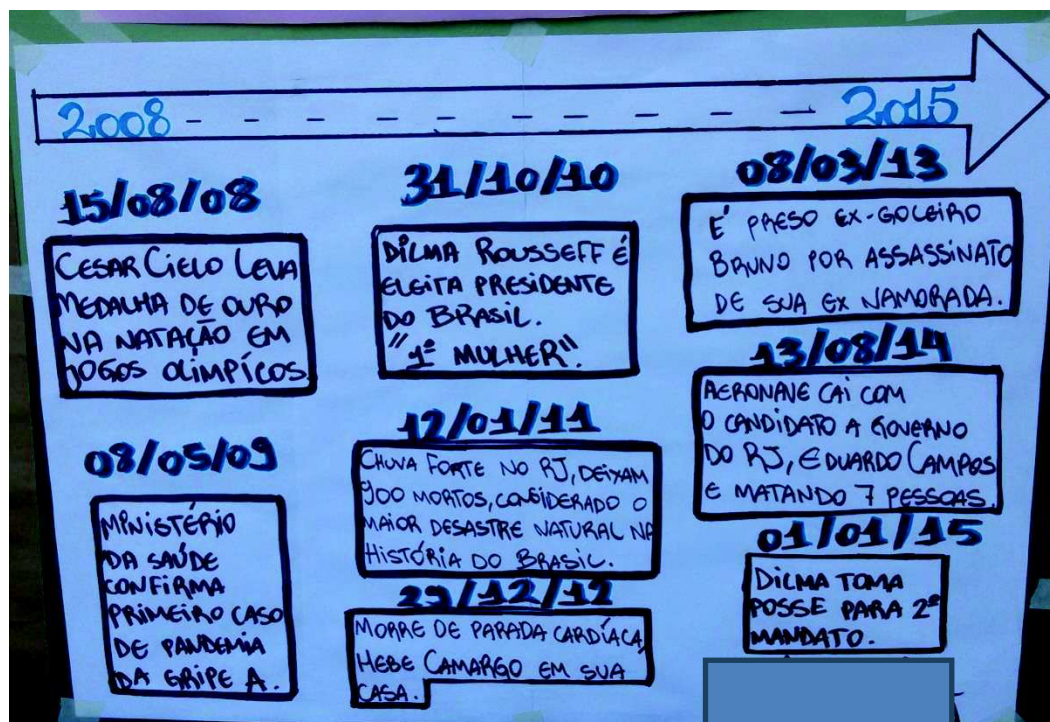 2008 - - - - - - - - - 2015
15/08/08
CESAR CIELO LEVA
MEDALHA DE OURO
NA NATAÇÃO EM
JOGOS OLIMPÍCOS
08/05/09
MINISTÉRIO
DA SAÚDE
CONFIRMA
PRIMEIRO CASO
DE PANDEMIA
DA GRIPE A.
31/10/10
DILMA ROUSSEFF É
ELEITA PRESIDENTE
DO BRASIL.
"1ª MULHER".
12/01/11
CHUVA FORTE NO RJ, DEIXAM
900 MORTOS, CONSIDERADO O
MAIOR DESASTRE NATURAL NA
HISTÓRIA DO BRASIL.
29/12/12
MORRE DE PARADA CARDÍACA,
HEBE CAMARGO EM SUA
CASA.
08/03/13
É PRESO EX-GOLEIRO
BRUNO POR ASSASSINATO
DE SUA EX NAMORADA.
13/08/14
AERONAVE CAI COM
O CANDIDATO A GOVERNO
DO RJ, EDUARDO CAMPOS
E MATANDO 7 PESSOAS.
01/01/15
DILMA TOMA
POSSE PARA 2º
MANDATO.